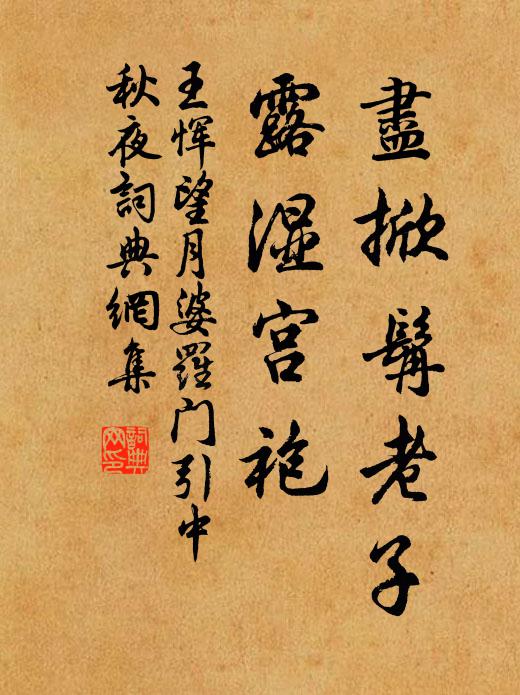 盡掀髯老子
露濕宫袍
王恽望月婆羅门引中
秋夜詞典網集
詞典网印